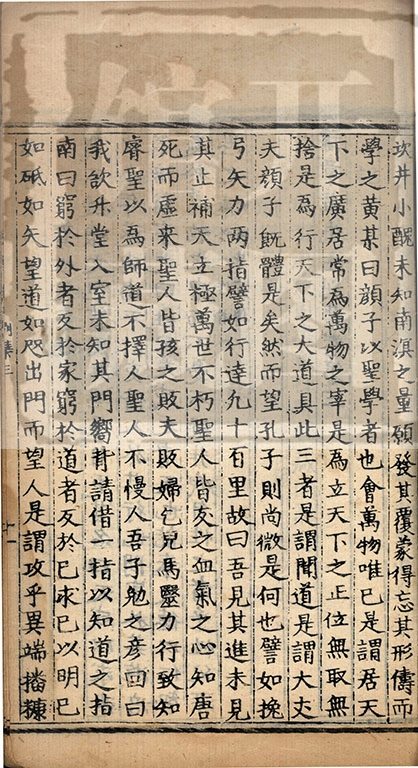 坎井小醜未知南溟之量願發其覆蒙得忘其形儔而
學之黄某曰顔子以聖學者也會萬物唯已是謂居天
下之廣居常爲萬物之宰是爲立天下之正位無取無
捨是爲行天下之大道具此三者是謂聞道是謂大丈
夫顔子旣體是矣然而望孔子則尚微是何也譬如挽
弓矢力两指譬如行達九十百里故曰吾見其進未見
其止補天立極萬世不朽聖人皆友之血氣之心知唐
死而虚来聖人皆孩之畋夫畋婦乞兒馬毉力行致知
睿聖以爲師道不擇人聖人不慢人吾子勉之彦回曰
我欲升堂入室未知其門嚮背請借指以知道之指
南曰窮於外者反於家窮於道者反於已求已以明已
如砥如矢望道如咫出門而望人是謂攻乎異端播糠